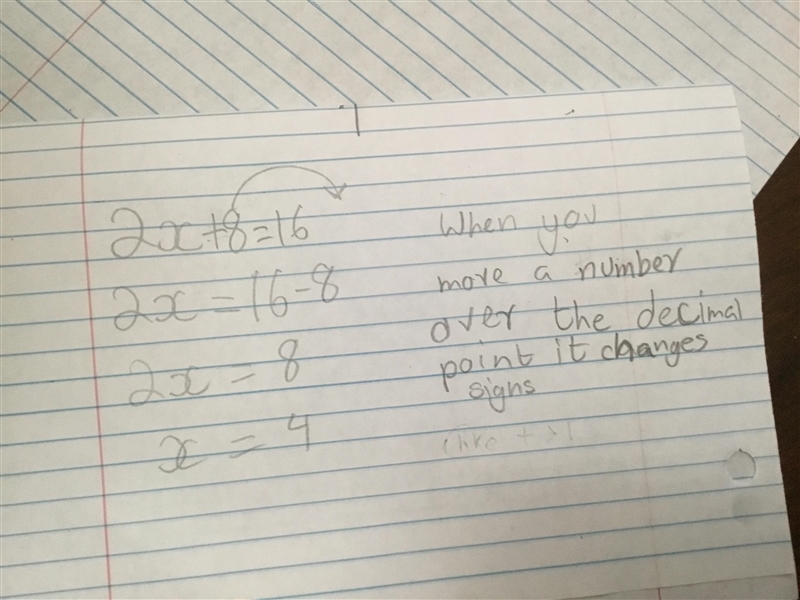 2x+8=16
2x=16-8
2x = 8
x = 4
When you
move a number
over the decimal
point it changes
signs